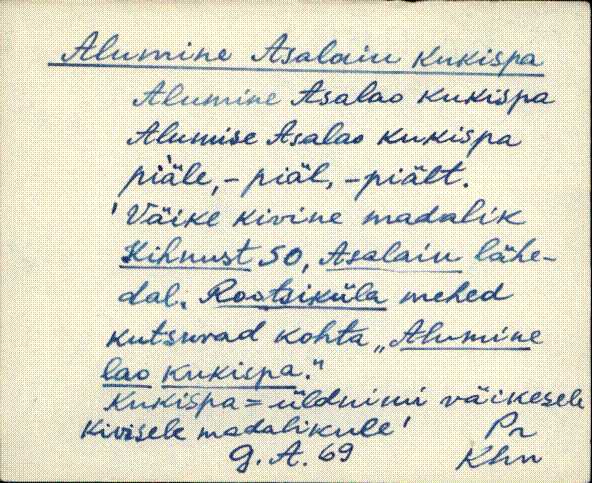 Alumine Asalaiu kukispa
Alumine Asalao kukispa
Alumise Asalao kukispa
piäle, - piäl, - piält.
'Väike kivine madalik
Kihnust SO, Asalaiu lähe-
dal. Rootsiküla mehed
kutsuvad kohta „Alumine
lao kukispa."
Kukispa = üldnimi väikesele
kivisele madalikule'
Pn
G. A. 69
Khn